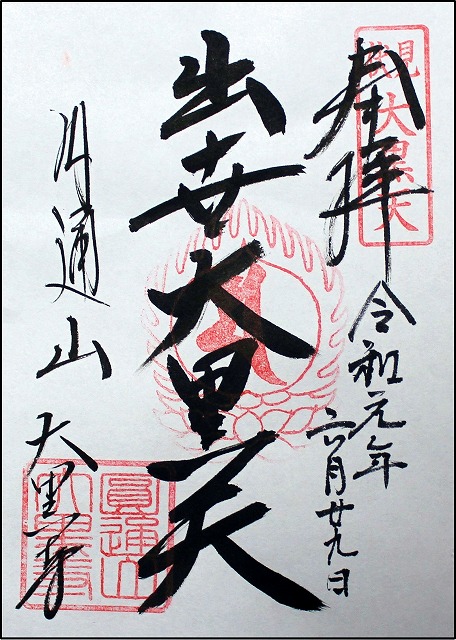 大黒天
奉拝
令和元年
六月廿九日
出世大黒天
円通山 大黒寺
圓通山
大黒寺